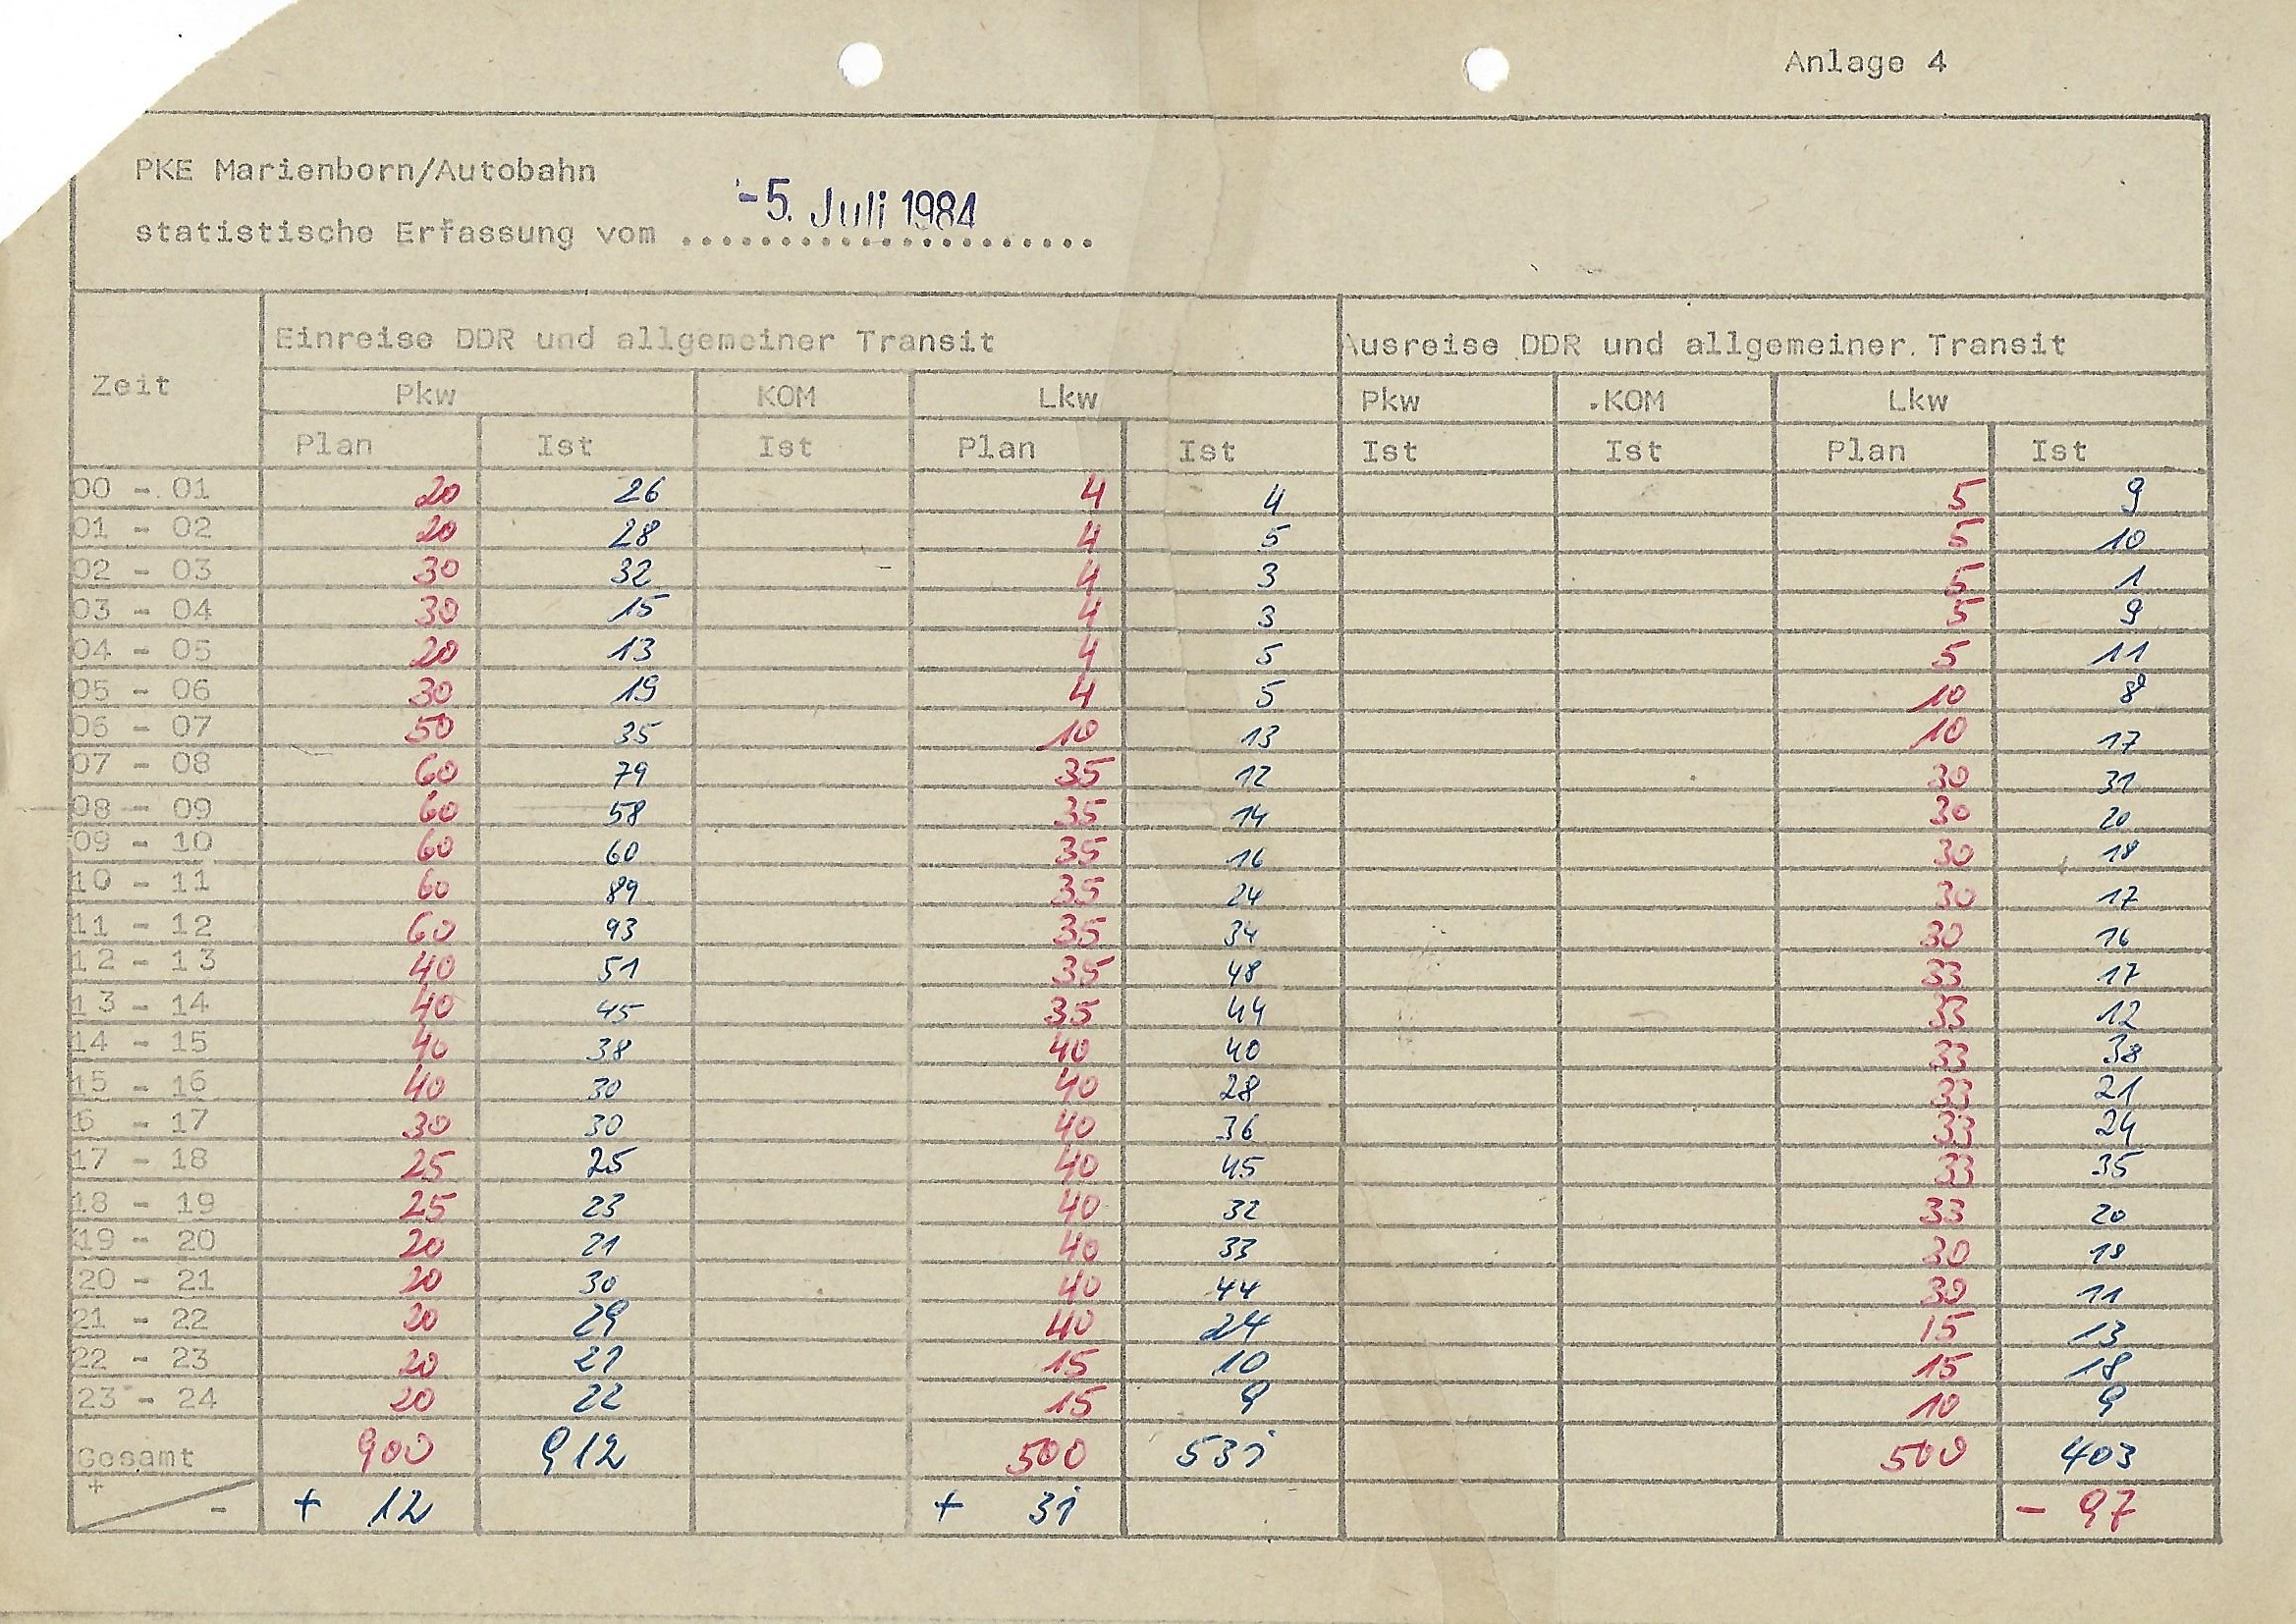 Anlage 4
PKE Marienborn/Autobahn
-5. Juli 1984
statistische Erfassung vom ....................
Einreise DDR und allgemeiner Transit Ausreise DDR und allgemeiner Transit
Zeit Pkw KOM Lkw Pkw KOM Lkw
Plan Ist Ist Plan Ist Ist Ist Plan Ist
00 - 01 20 26 4 4 5 9
01 - 02 20 28 4 5 5 10
02 - 03 30 32 4 3 5 1
03 - 04 30 15 4 3 5 9
04 - 05 20 13 4 5 5 11
05 - 06 30 19 4 5 10 8
06 - 07 50 35 10 13 10 17
07 - 08 60 79 35 12 30 31
08 - 09 60 58 35 14 30 20
09 - 10 60 60 35 16 30 18
10 - 11 60 89 35 24 30 17
11 - 12 60 93 35 34 30 16
12 - 13 40 51 35 48 33 17
13 - 14 40 45 35 44 33 12
14 - 15 40 38 40 40 33 38
15 - 16 40 30 40 28 33 21
6 - 17 30 30 40 36 33 24
17 - 18 25 25 40 45 33 35
18 - 19 25 23 40 32 33 20
19 - 20 20 21 40 33 30 18
20 - 21 20 30 40 44 30 11
21 - 22 20 29 40 24 15 13
22 - 23 20 21 15 10 15 18
23 - 24 20 22 15 9 10 9
Gesamt 900 912 500 531 500 403
+ - + 12 + 31 - 97